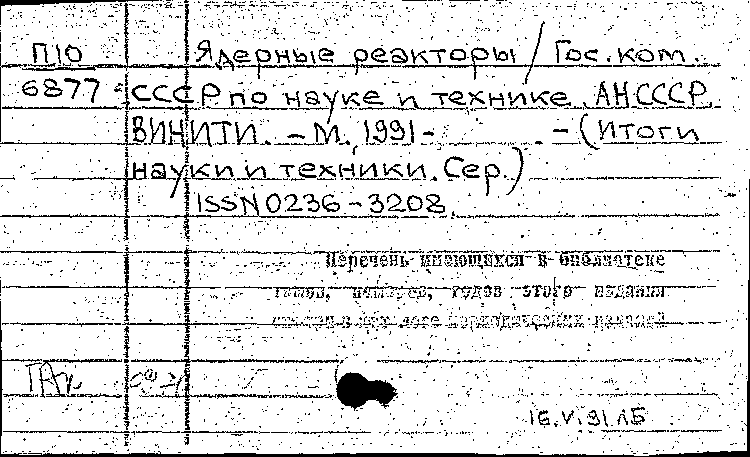 П10 Ядерные реакторы / Гос. ком.
6877 СССР по науке и технике. АН СССР.
ВИНИТИ. - М., 1991 - . - (Итоги
науки и техники. Сер.)
ISSN 0236-3208.
Перечень имеющихся в библиотеке
томов, номеров, годов этого издания
16.V.91 ЛБ